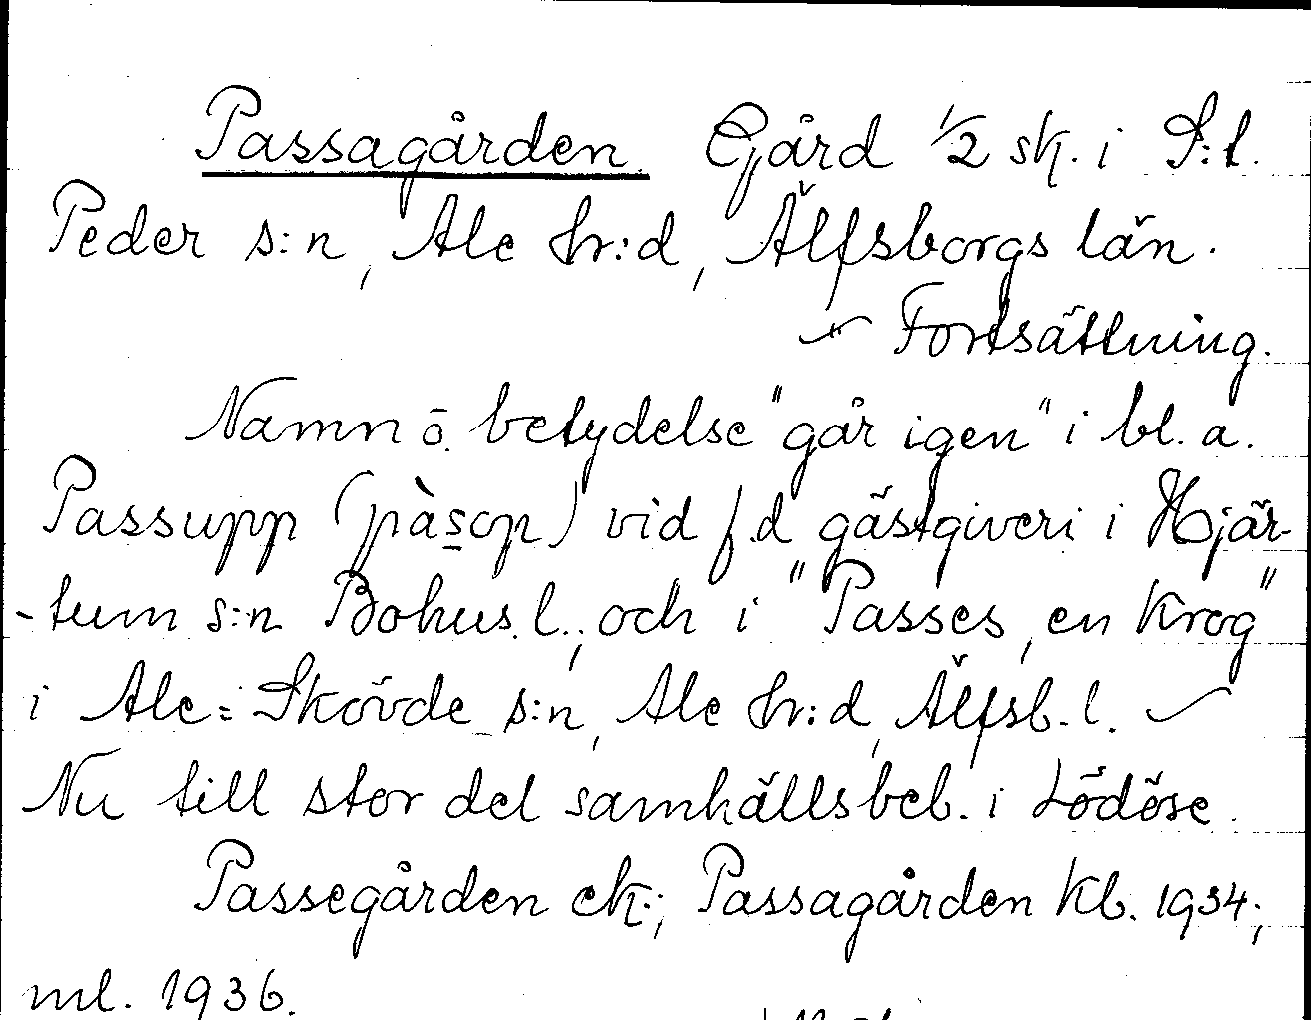 Passagården. Gård 1/2 sk. i S:t.
Peder s:n, Ale hr:d, Älfsborgs län.
Fortsättning.
Namn o. betydelse "går igen" i bl. a.
Passupp (pàsop) vid f.d gästgiveri i Hjär-
-tum s:n Bohus. l., och i "Passes, en Krog"
i Ale-Skövde s:n, Ale hr:d, Älfsb. l.
Nu till stor del samhällsbeb. i Lödöse.
Passegården ek.; Passagården Kb. 1934;
ml. 1936.